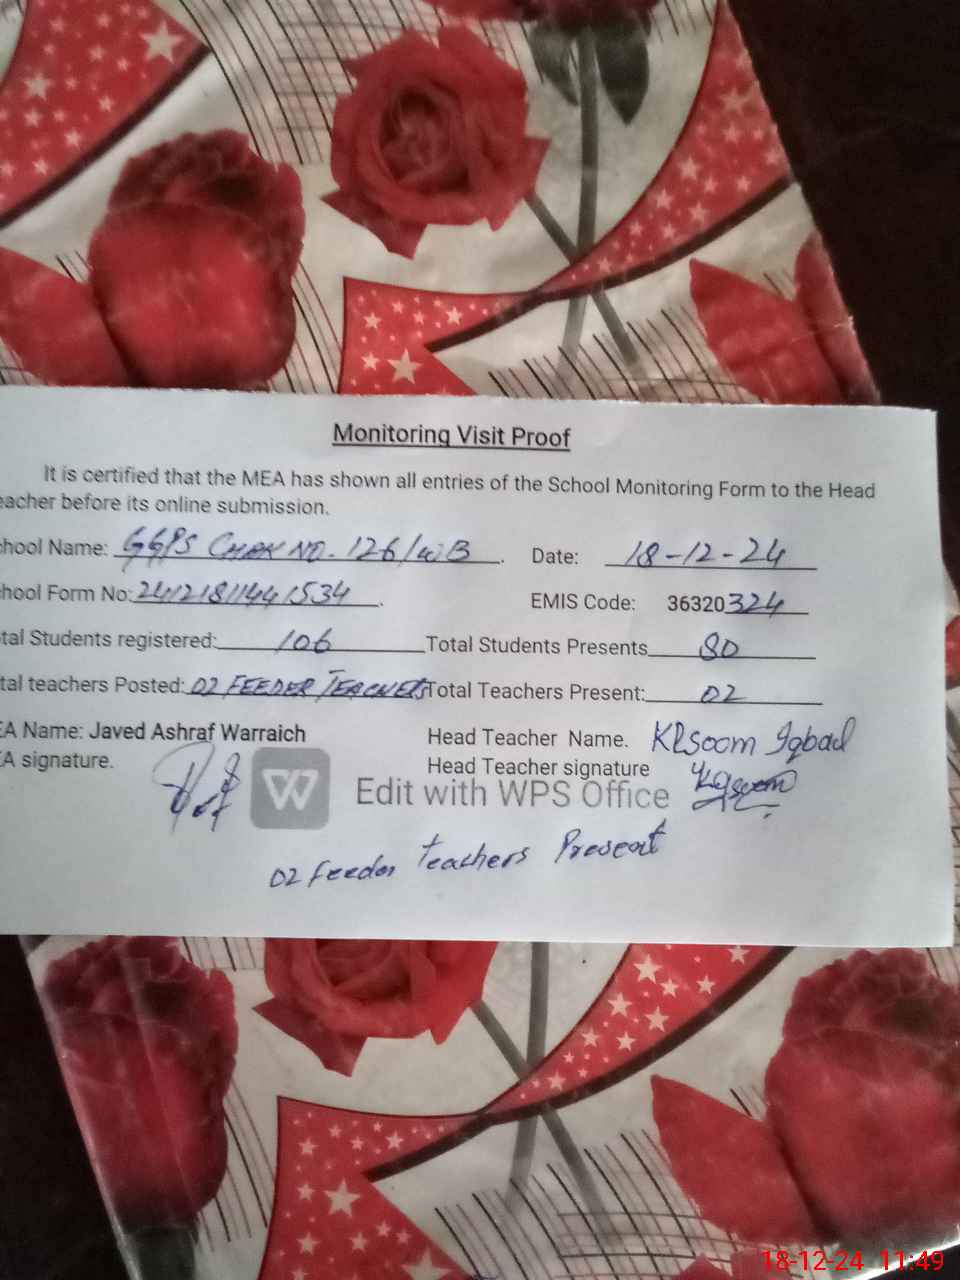 Monitoring Visit Proof
It is certified that the MEA has shown all entries of the School Monitoring Form to the Head
eacher before its online submission.
hool Name: GGPS CHAK NO. 126/WB. Date: 18-12-24
hool Form No: 24121811441534. EMIS Code: 36320324
tal Students registered: 106 Total Students Presents 80
tal teachers Posted: 02 FEEDER TEACHERS Total Teachers Present: 02
EA Name: Javed Ashraf Warraich Head Teacher Name. Klsoom Iqbal
EA signature. Head Teacher signature
W Edit with WPS Office
02 Feeder Teachers Present
18-12-24 11:49